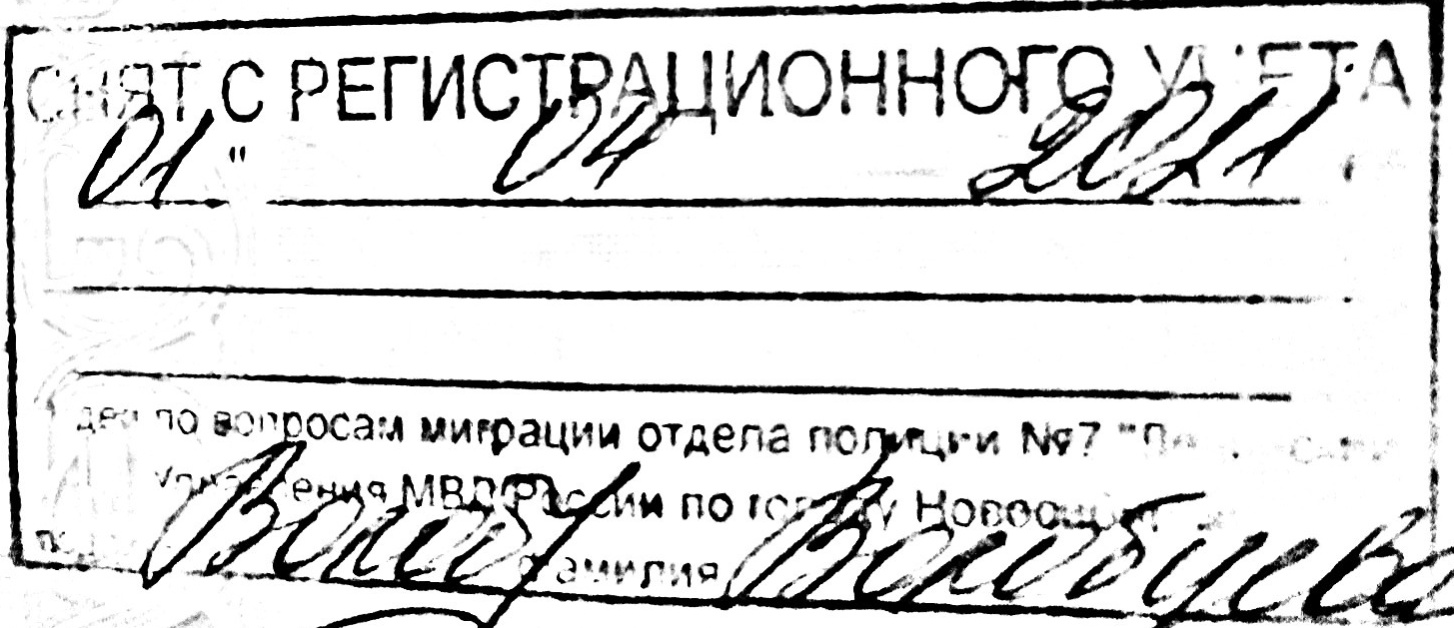 СНЯТ С РЕГИСТРАЦИОННОГО УЧЕТА
01 " 04 2021
по вопросам миграции отдела полиции №7
Управления МВД России по городу
фамилия